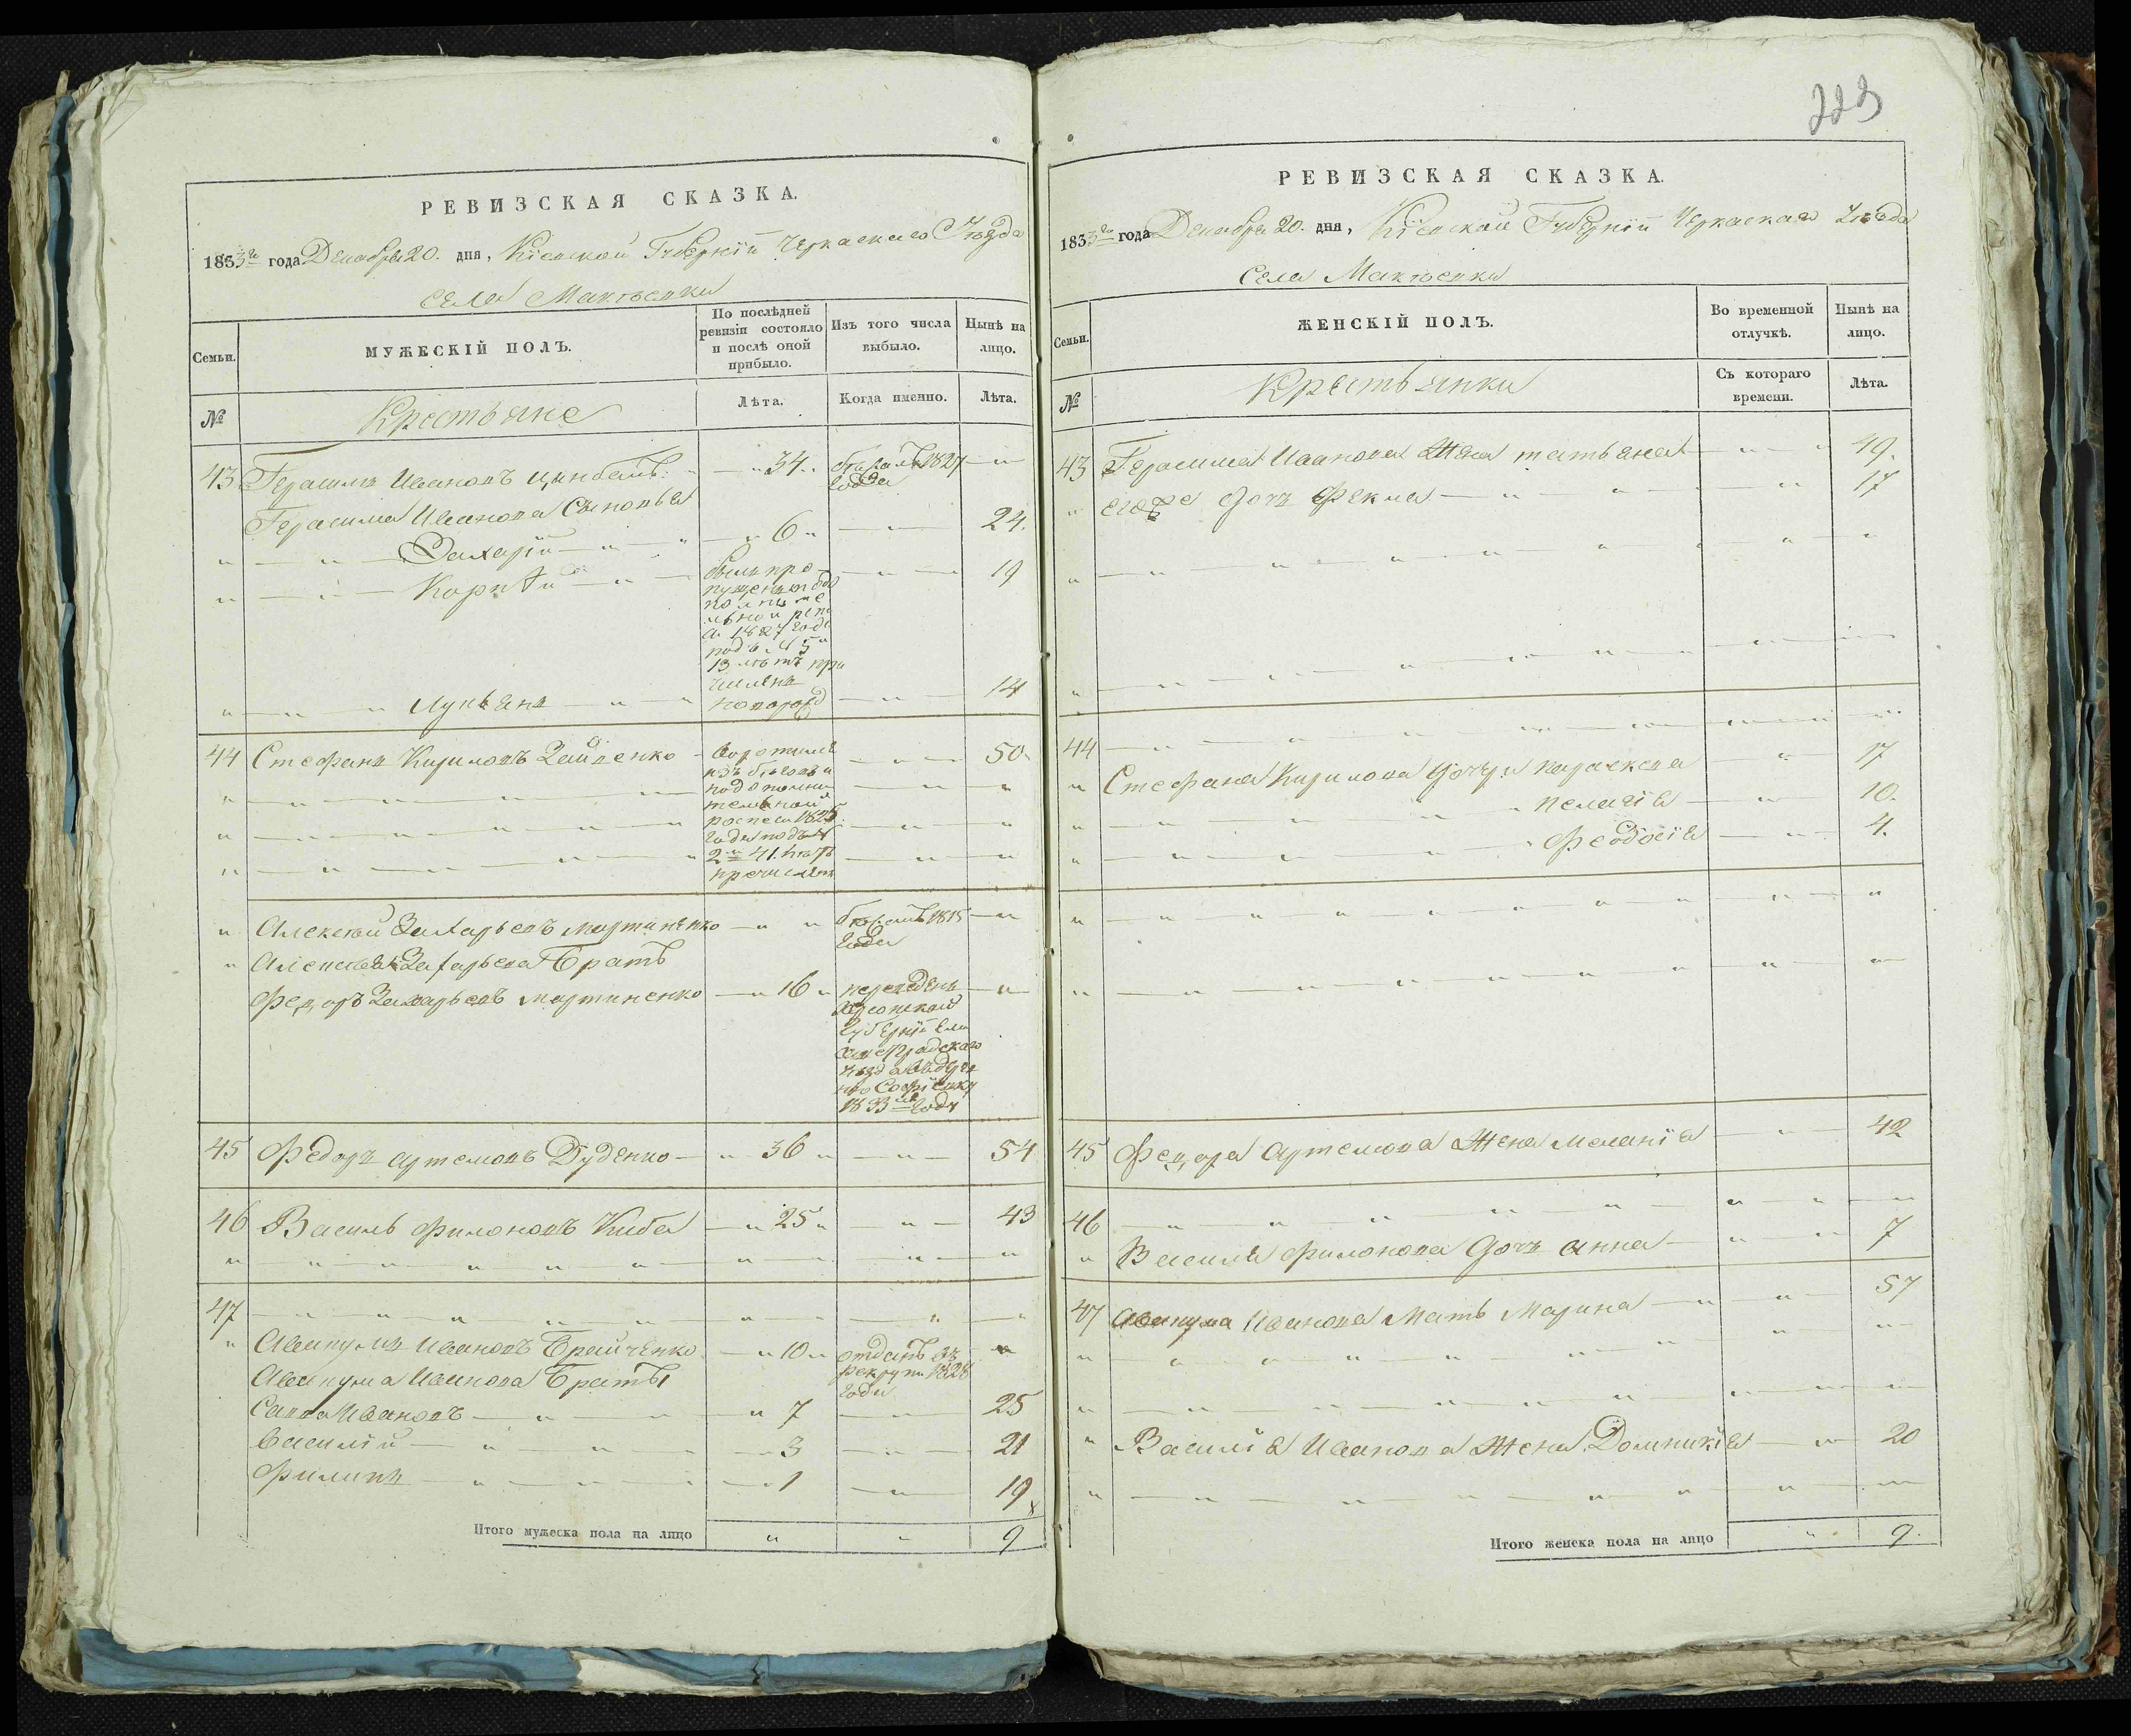 РЕВИЗСКАЯ СКАЗКА.
1833го года Декабря 20. дня, Кіевской Губерніи Черкаскаго Уѣзда
Села Макѣевки
Семьи.
МУЖЕСКІЙ ПОЛЪ.
По послѣдней ревизіи состояло и послѣ оной прибыло.
Изъ того числа выбыло.
Нынѣ на лицо.
№
Крестьяне
Лѣта.
Когда именно.
Лѣта.
43 Герасимъ Ивановъ Цинбалъ 34 1827 года
Герасима Иванова Сыновья
Захарій 6 24.
Карпъ 19
былъ про
пущенъ
1827 года
13 лѣтъ при
численъ
Лукьянъ новорожд 14
44 Стефанъ Кириловъ 50
воротился
изъ бѣговъ и
по дополни
тельной
1825
года подъ №
2м 41. лѣтъ
причисленъ
Алексѣй Захарьевъ Мартиненко 1815
года
Алексѣя Захарьева Братъ
Федоръ Захарьевъ Мартиненко 16 переведенъ
Херсонской
Губерніи Ели
саветградскаго
уѣзда въ дере
вню Софіевку
1833мъ году
45 Федоръ Артемовъ Дуденко 36 54
46 Василь Филоновъ Киба 25 43
47
Авакумъ Ивановъ Брайченко 10 отданъ въ
рекруты 1828
года
Авакума Иванова Братья
Савва Ивановъ 7 25
Василій 3 21
Филипъ 1 19
Итого мужеска пола на лицо 9
223
РЕВИЗСКАЯ СКАЗКА.
1833го года Декабря 20. дня, Кіевской Губерніи Черкаскаго Уѣзда
Села Макѣевки
Семьи.
ЖЕНСКІЙ ПОЛЪ.
Во временной отлучкѣ.
Нынѣ на лицо.
№
Крестьянки
Съ котораго времени.
Лѣта.
43 Герасима Иванова Жена Татьяна 49.
его же Дочь Фекла 17
44
Стефана Кирилова Дочери Параскева 17
Пелагія 10.
Феодосія 4.
45 Федора Артемова Жена Меланія 42
46
Василя Филонова Дочь Анна 7
47 Авакума Иванова Мать Марина 57
Василія Иванова Жена Домникія 20
Итого женска пола на лицо 9.